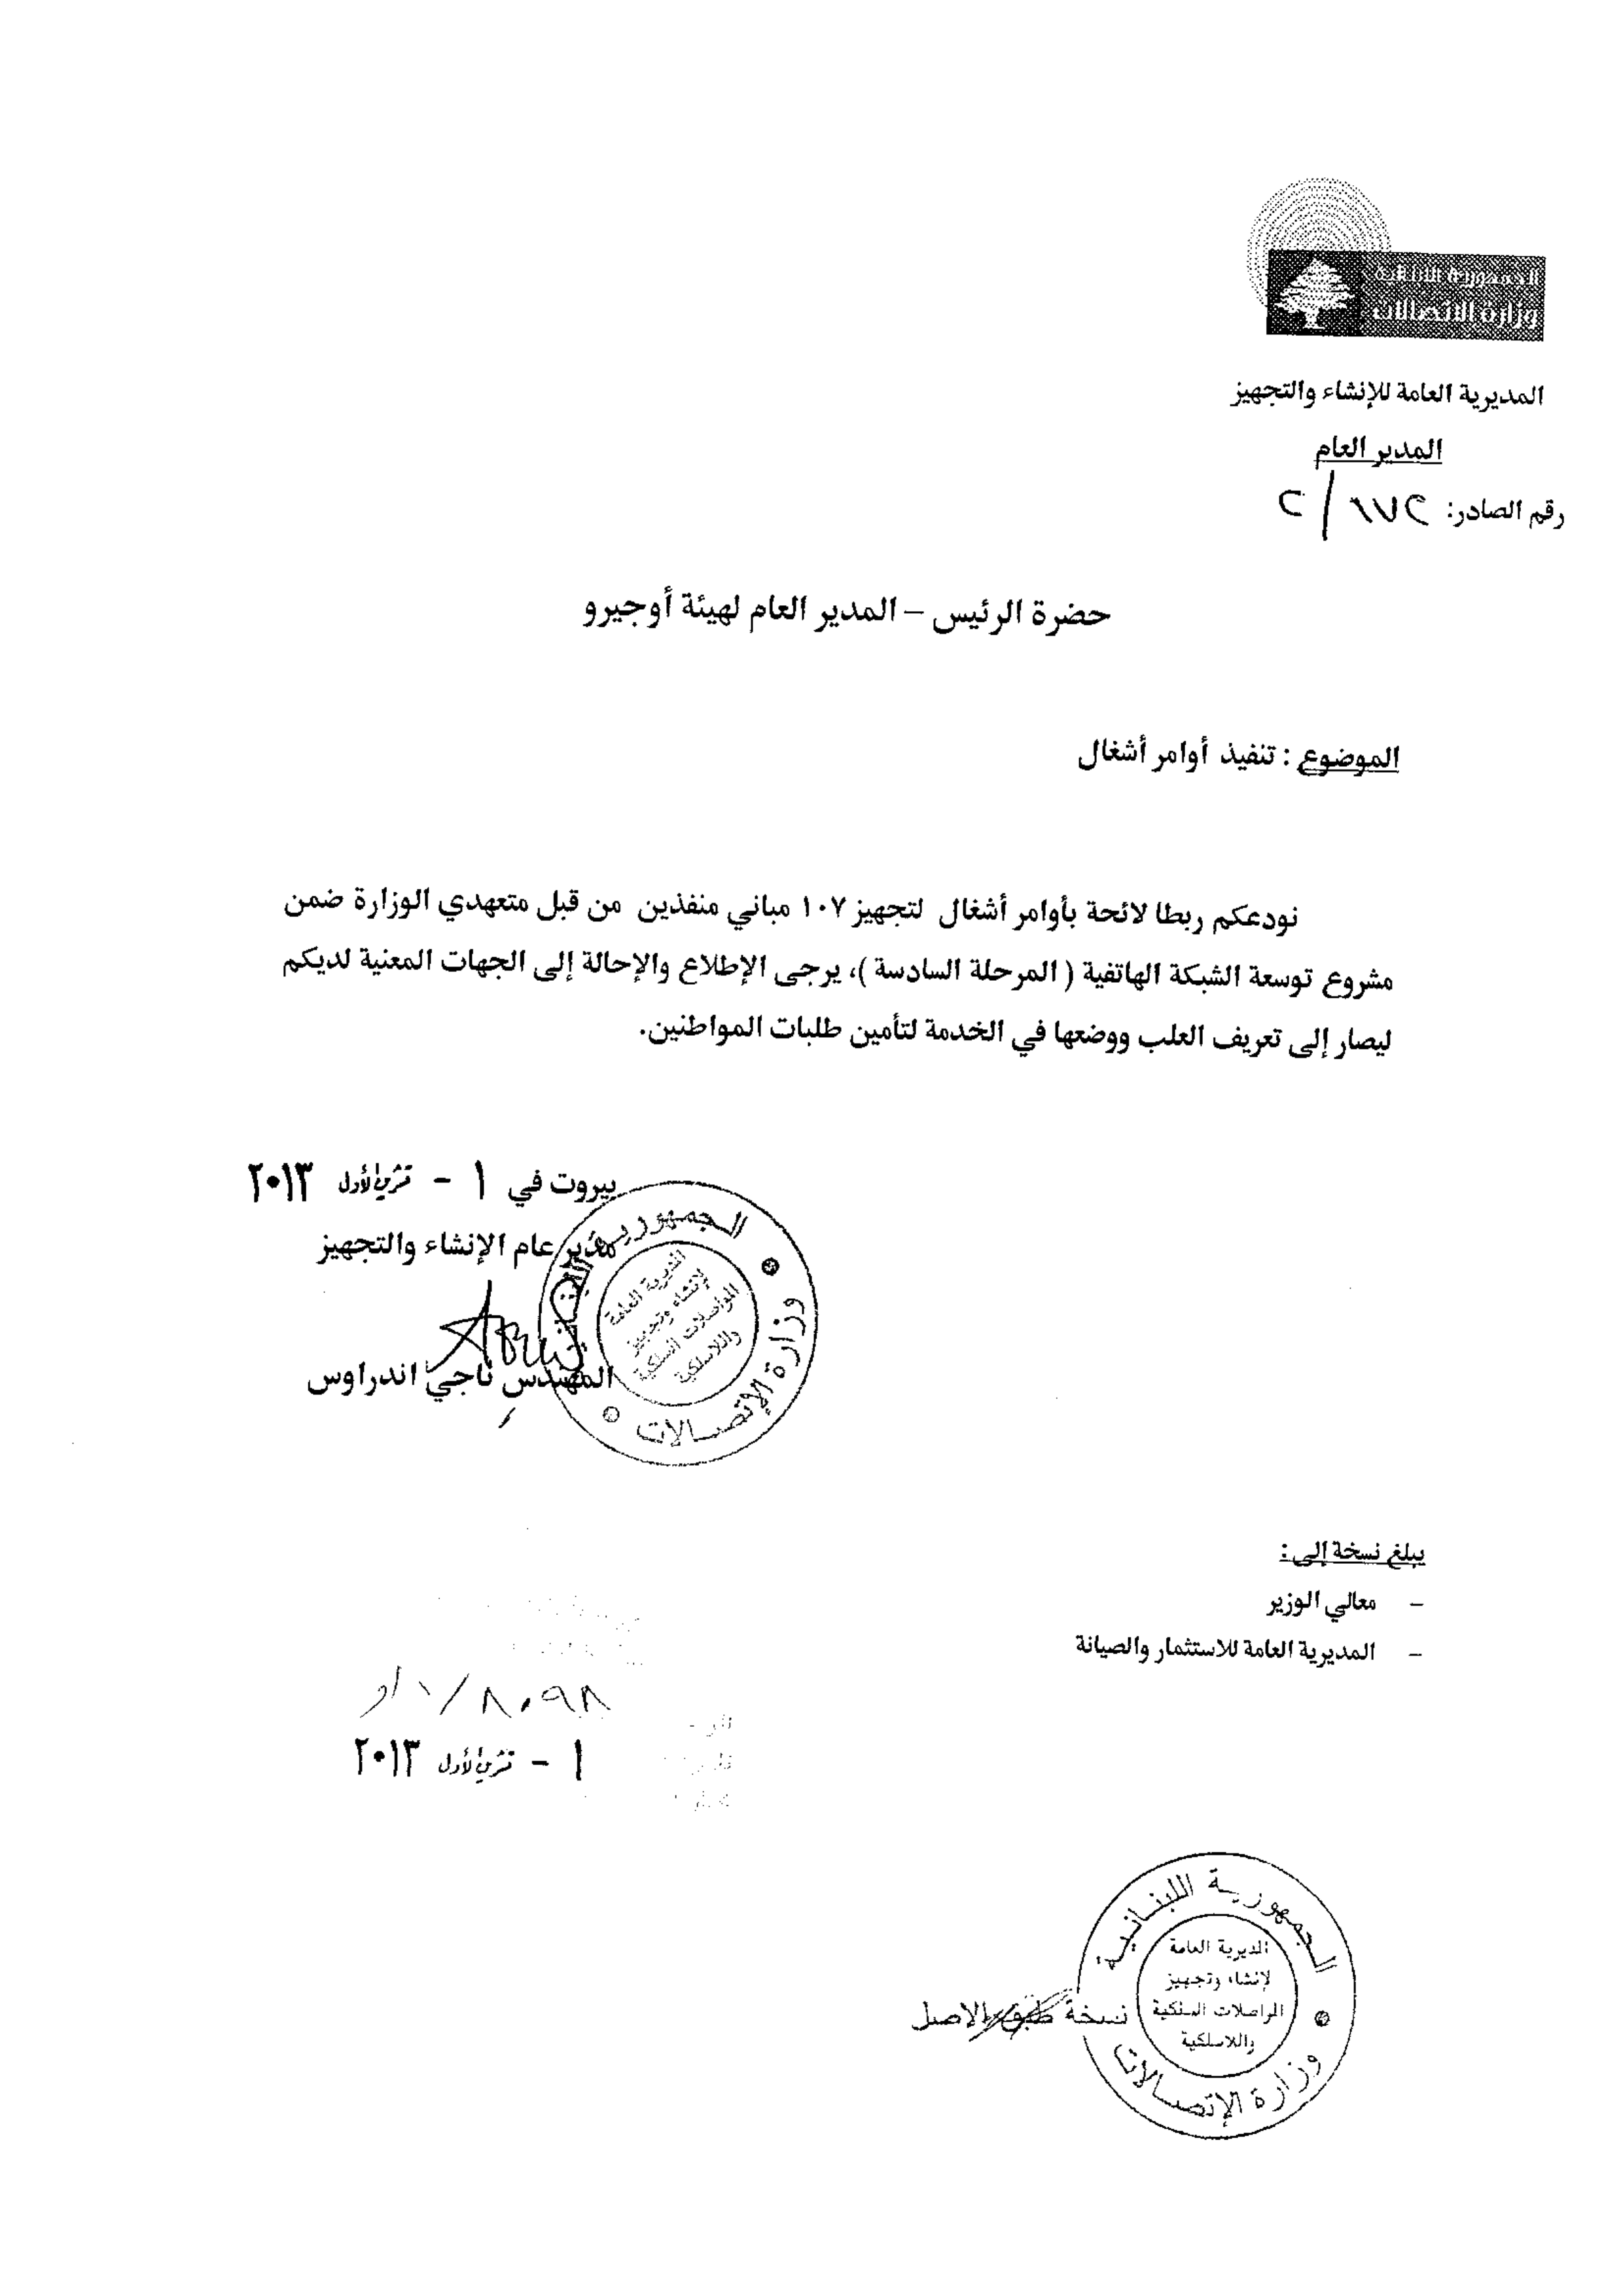 الجمهورية اللبنانية
وزارة الاتصالات
المديرية العامة للإنشاء والتجهيز
المدير العام
رقم الصادر:
حضرة الرئيس – المدير العام لهيئة أوجيرو
الموضوع : تنفيذ أوامر أشغال
نودعكم ربطا لائحة بأوامر أشغال لتجهيز ١٠٧ مباني منفذين من قبل متعهدي الوزارة ضمن
مشروع توسعة الشبكة الهاتفية ( المرحلة السادسة )، يرجى الإطلاع والإحالة إلى الجهات المعنية لديكم
ليصار إلى تعريف العلب ووضعها في الخدمة لتأمين طلبات المواطنين.
بيروت في ١ - تشرين الأول ٢٠١٣
مدير عام الإنشاء والتجهيز
المهندس ناجي اندراوس
الجمهورية اللبنانية
المديرية العامة
لإنشاء وتجهيز
المواصلات السلكية
واللاسلكية
وزارة الإتصالات
يبلغ نسخة إلى :
- معالي الوزير
- المديرية العامة للاستثمار والصيانة
١ - تشرين الأول ٢٠١٣
الجمهورية اللبنانية
المديرية العامة
لإنشاء وتجهيز
المواصلات السلكية
واللاسلكية
وزارة الإتصالات
نسخة طبق الاصل